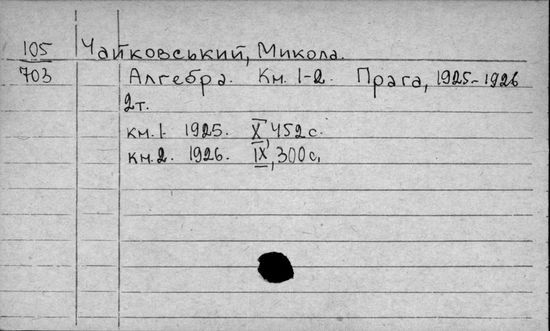 105 Чайковський, Микола.
703 Алгебра. Кн. 1-2. Прага, 1925-1926
2т.
кн.1. 1925. X, 452 с.
кн.2. 1926. IX, 300 с.